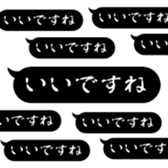 いいですね
いいですね
いいですね
いいですね
いいですね
いいですね
いいですね
いいですね
いいですね